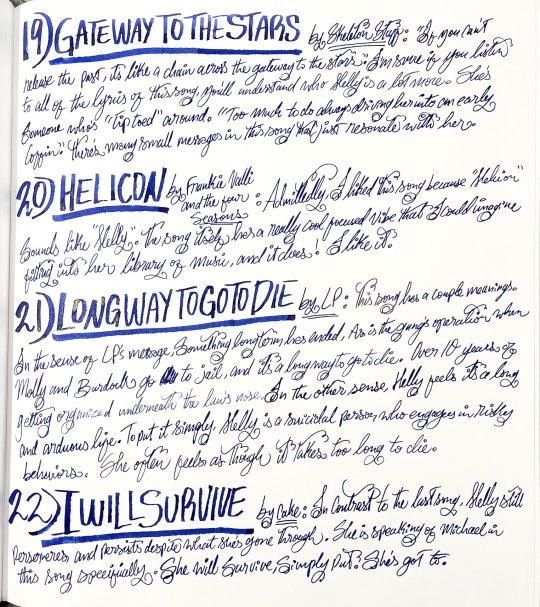 19) GATEWAY TO THE STARS by Skeleton Staff: "If you can't
release the past, its like a chain across the gateway to the stars". I'm sure if you listen
to all of the lyrics of this song, you'll understand who Shelly is a lot more. She's
someone who's "tip toed" around. "Too much to do always driving her into an early
coffin". There's many small messages in this song that just resonate with her.
20) HELICON by Frankie Valli
and the four
Seasons : Admittedly, I liked this song because "Helicon"
sounds like "Shelly". The song itself has a really cool focused vibe that I could imagine
fitting into her library of music, and it does! I like it.
21) LONG WAY TO GO TO DIE by LP: This song has a couple meanings.
In the sense of LP's message, Something long term has ended, As is the gang's operation when
Molly and Burdock go to jail, and it's a long way to go to die. Over 10 years of
getting organized underneath the law's nose. In the other sense, Shelly feels it's a long
and arduous life. To put it simply, Shelly is a suicidal person, who engages in risky
behaviors. She often feels as though it takes too long to die.
22) I WILL SURVIVE by Cake: In Contrast to the last song, Shelly still
perseveres, and persists despite what she's gone through. She is speaking of Michael in
this song specifically. She will survive, Simply put: She's got to.